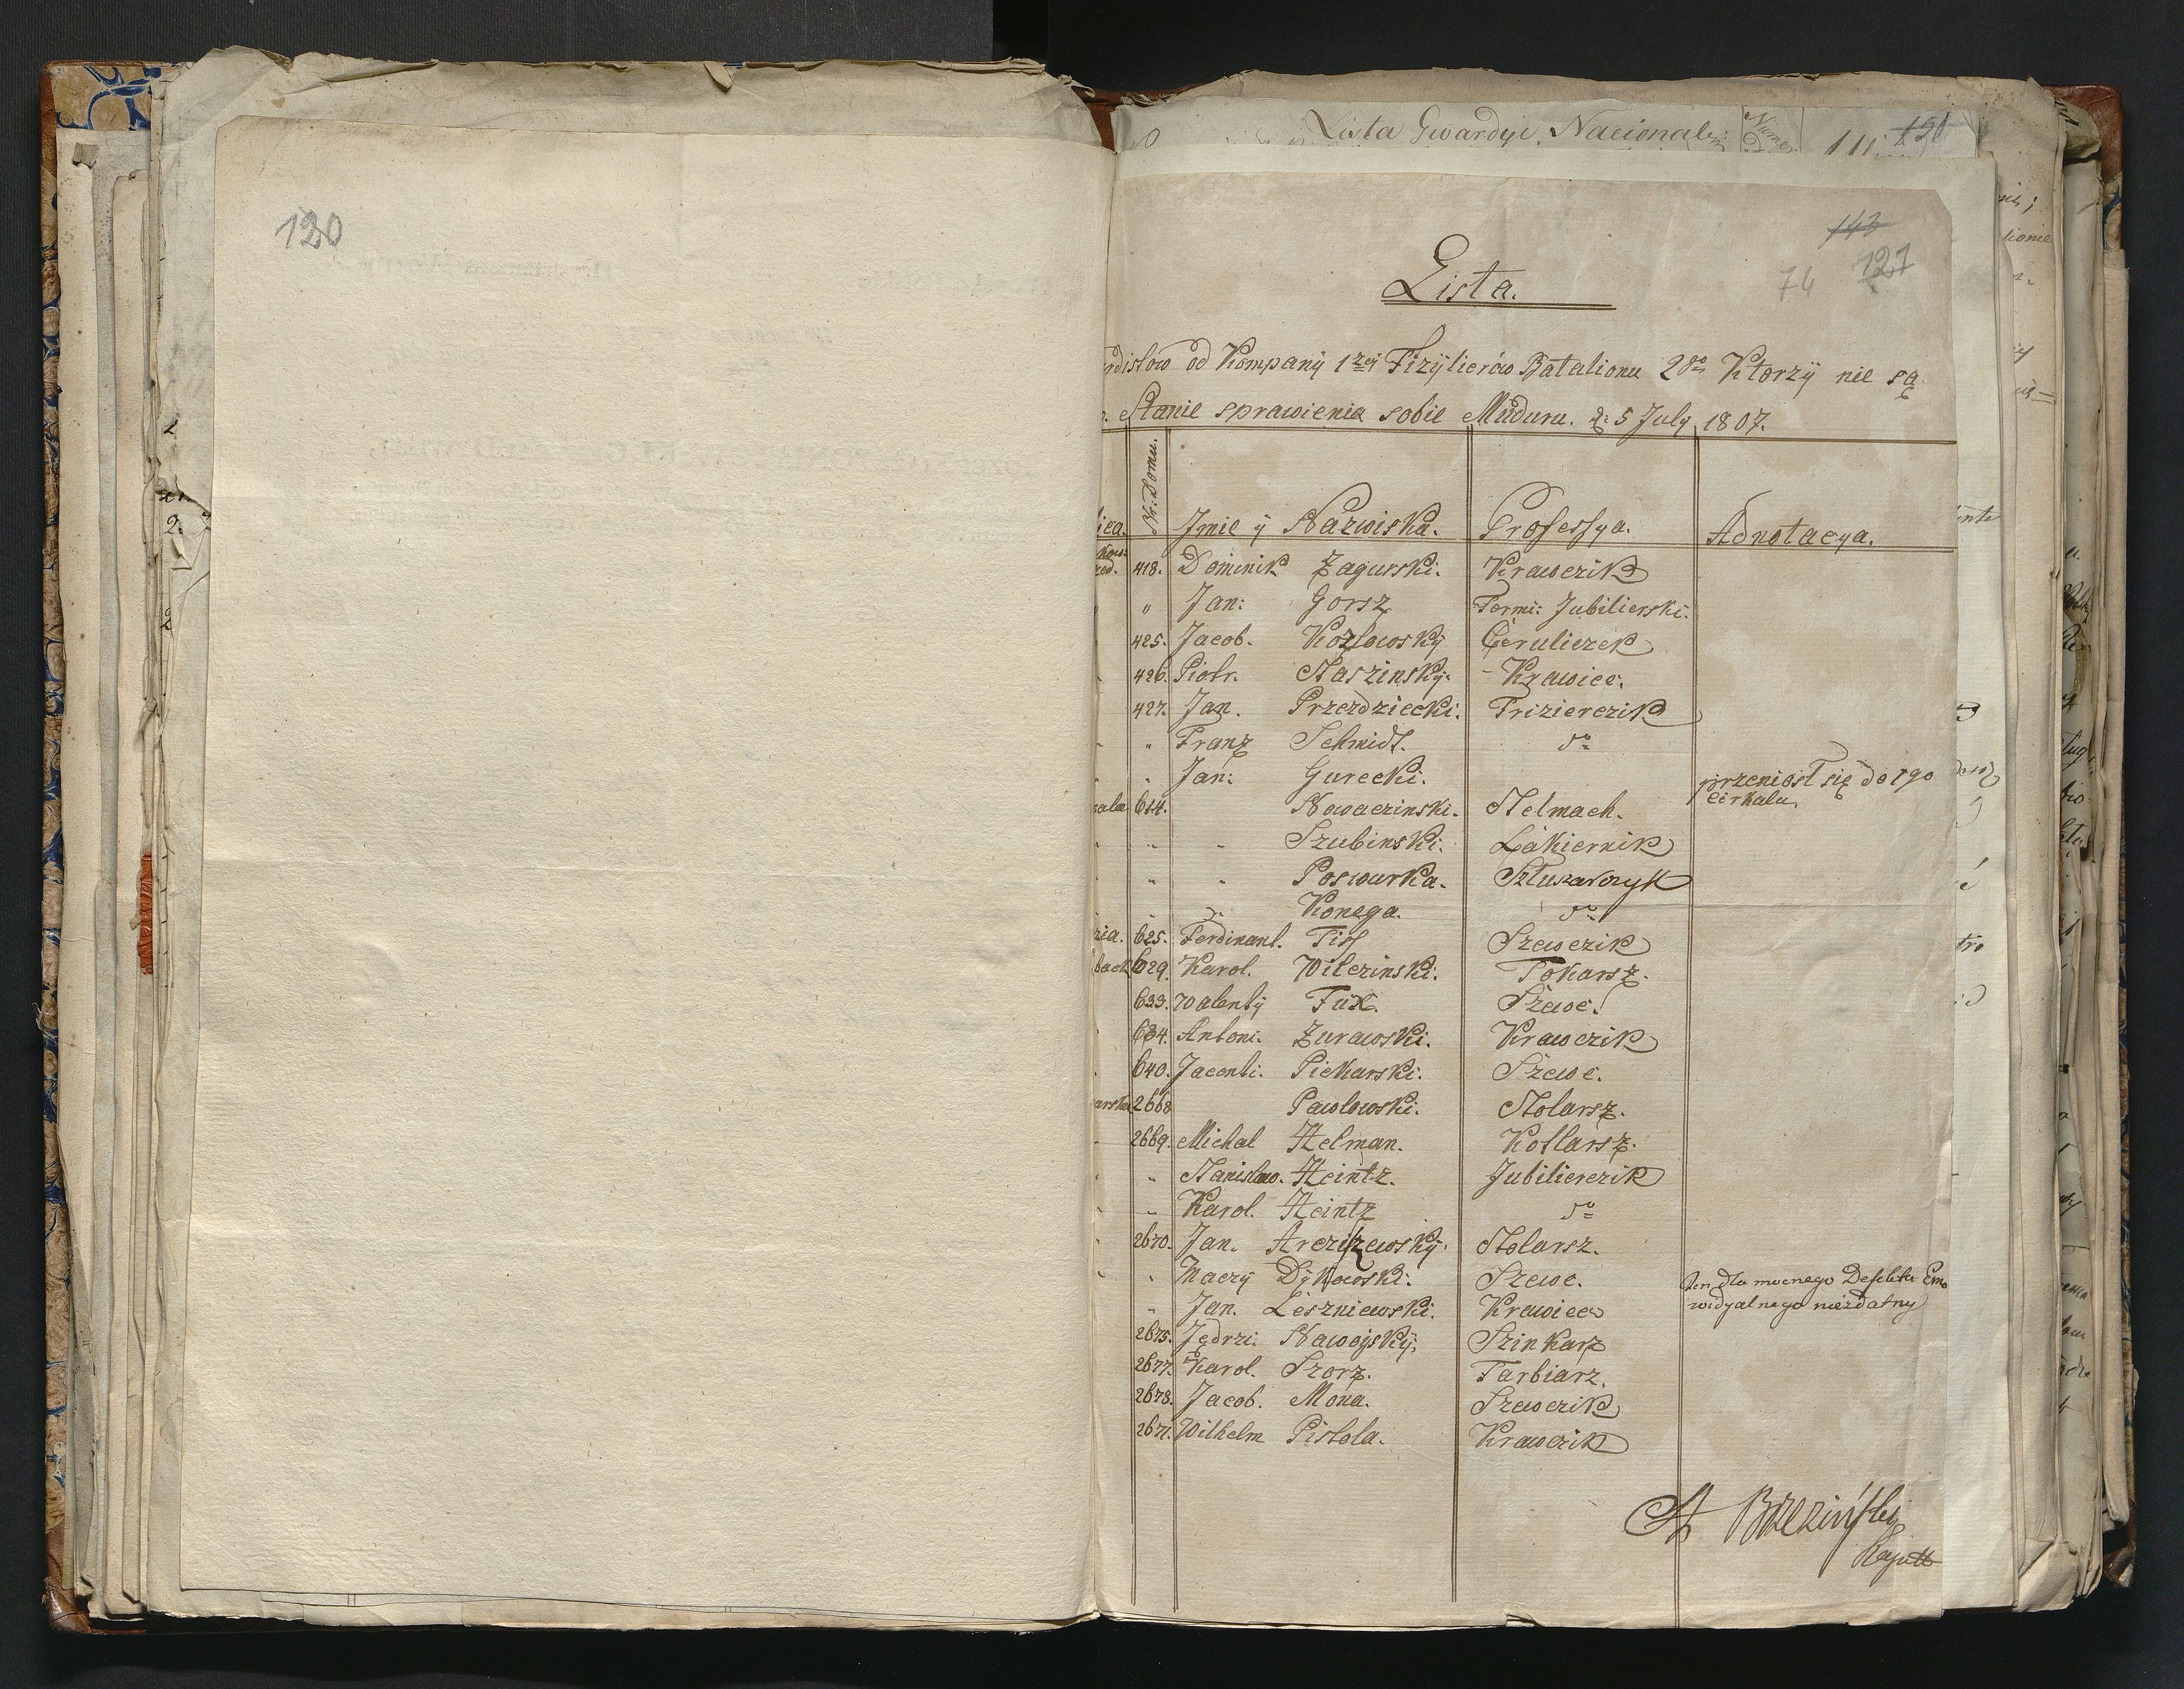 120
Lista Gwardyi Nacionalney
150
143
74 127
Lista.
rdistów od Kompanÿ 1zeÿ Fizÿlierów Batalionu 2go Ktorzÿ nie są
Stanie sprawienia sobie Mûduru. d: 5 July 1807.
Nr: Domu. Jmie ÿ Nazwiska. Professya. Adnotacya.
418. Dominik Zagurski. Krawczik
" Jan: Gorsz Termi: Jubilierski.
425. Jacob. Kozlowskÿ Ceruliczek
426. Piotr. Staszinskÿ. Krawiec.
427. Jan. Przezdziecki. Frizierczik
" Franz Schmidt. do
" Jan: Gurecki. przeniosł się do 7go
cirkulu.
614. Nowaczinski. Stelmach.
" " Szubinski. Lakiernik
" " Poswurka. Szlusarczyk
" Konega. do
625. Ferdinant. Tiss Szewczik
629. Karol. Wilczinski. Tokarsz.
633. Walentÿ Fux. Szewc.
634. Antoni. Zurawski. Krawczik
640. Jacenti. Piekarski. Szewc.
2668 Pawlowski. Stolarsz.
2669. Michal Helman. Kotlarsz.
" Stanislaw. Heintz. Jubilierczik
" Karol. Heintz do
2670. Jan. Arcziszewskÿ. Stolarsz.
" Maczÿ Dÿkowski. Szewc. ten dla mocnego Defektu
" Jan. Leszniewski. Krawiec widyalnego niezdatny
2675. Jędrzi: Nawoÿskÿ. Szinkarz
2677. Karol. Szorz. Farbiarz.
2678. Jacob. Mona. Szewczik
2671. Wilhelm Pistola. Krawczik
St Brzezińsky
Kapitt